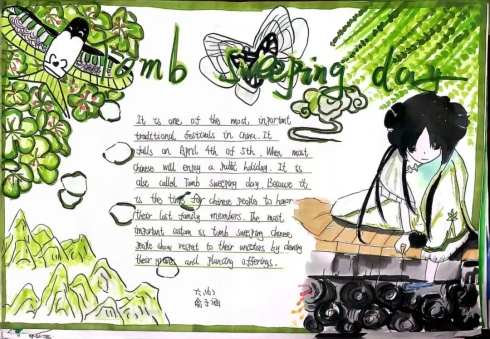 tomb sweeping day
It is one of the most important
traditional festivals in China. It
falls on April 4th of 5th, When most
Chinese will enjoy a public holiday. It is
also called Tomb Sweeping day. Because it
is the time for chinese people to honor
their last family members. The most
important custom is tomb sweeping chinese
people show respat to their ancestors by cleaning
their graves and placing offerings.